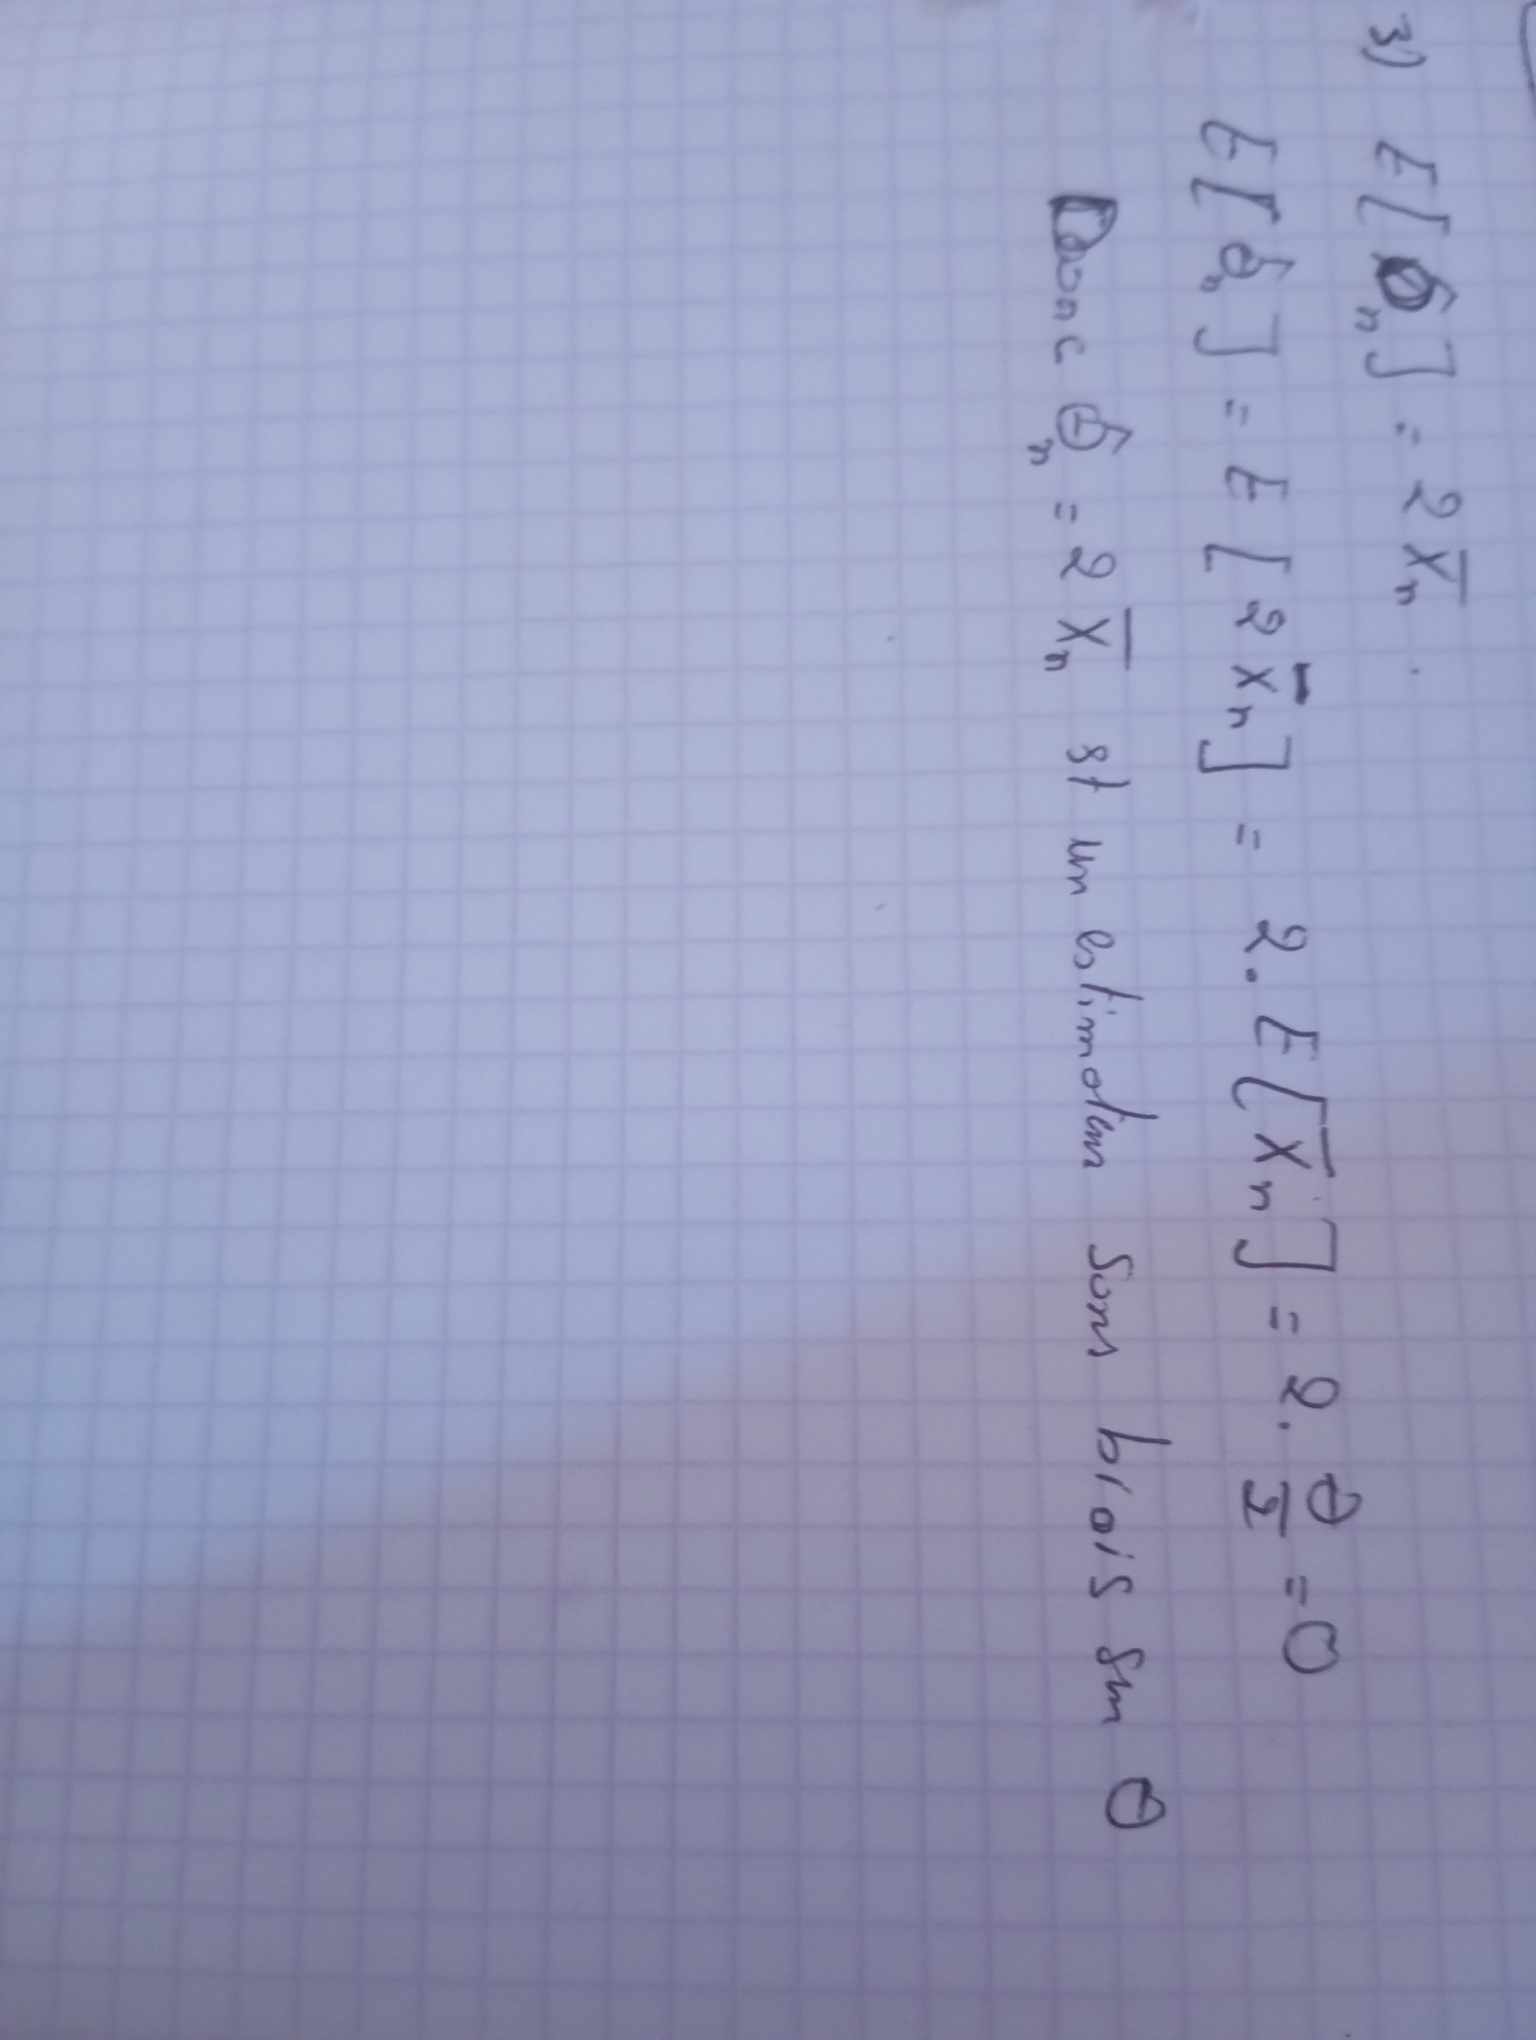 3) E[θ̂n] = 2X̄n.
E[θ̂n] = E[2X̄n] = 2.E[X̄n] = 2.θ/2 = θ
Donc θ̂n = 2X̄n st un estimateur sans biais sur θ